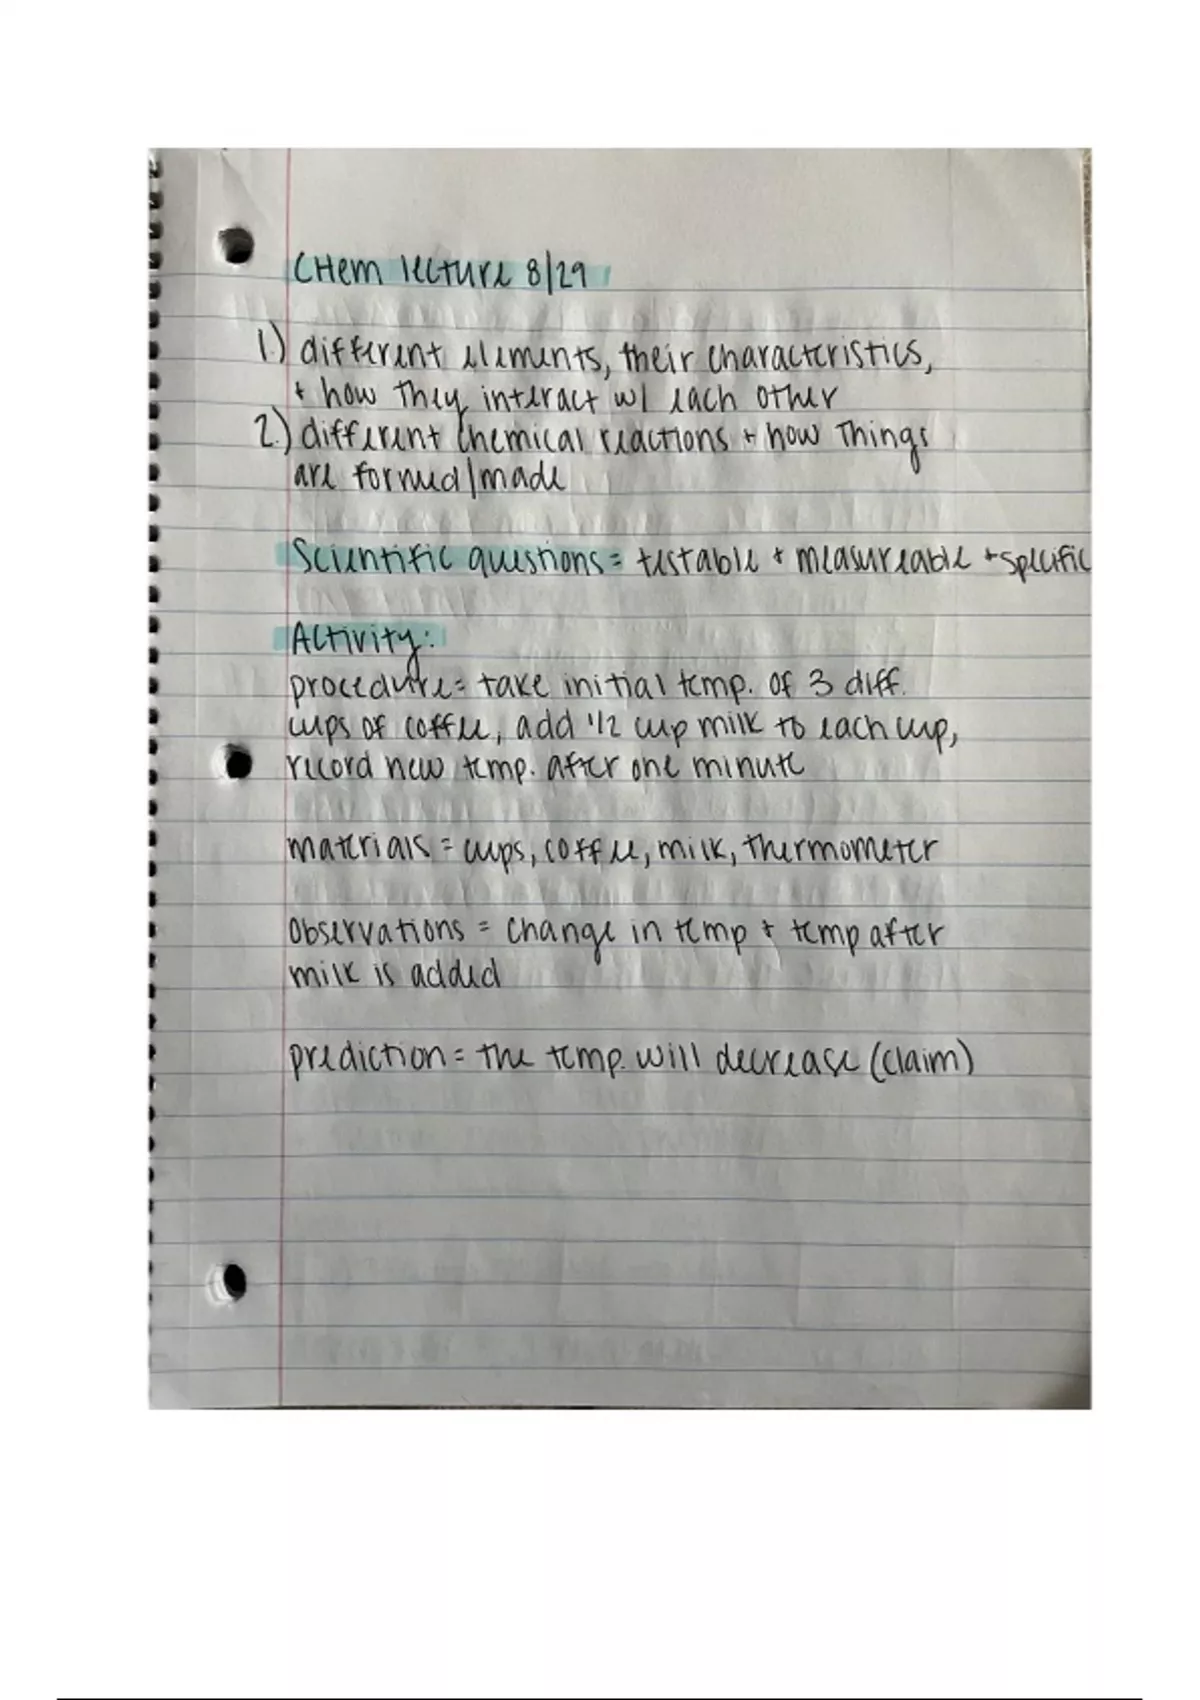 CHem lecture 8/29
1.) different elements, their characteristics,
+ how they interact w/ each other
2.) different chemical reactions + how things
are formed/made
Scientific questions = testable + measureable + specific
Activity:
procedure = take initial temp. of 3 diff.
cups of coffee, add 1/2 cup milk to each cup,
record new temp. after one minute
materials = cups, coffee, milk, thermometer
observations = change in temp + temp after
milk is added
prediction = the temp. will decrease (claim)